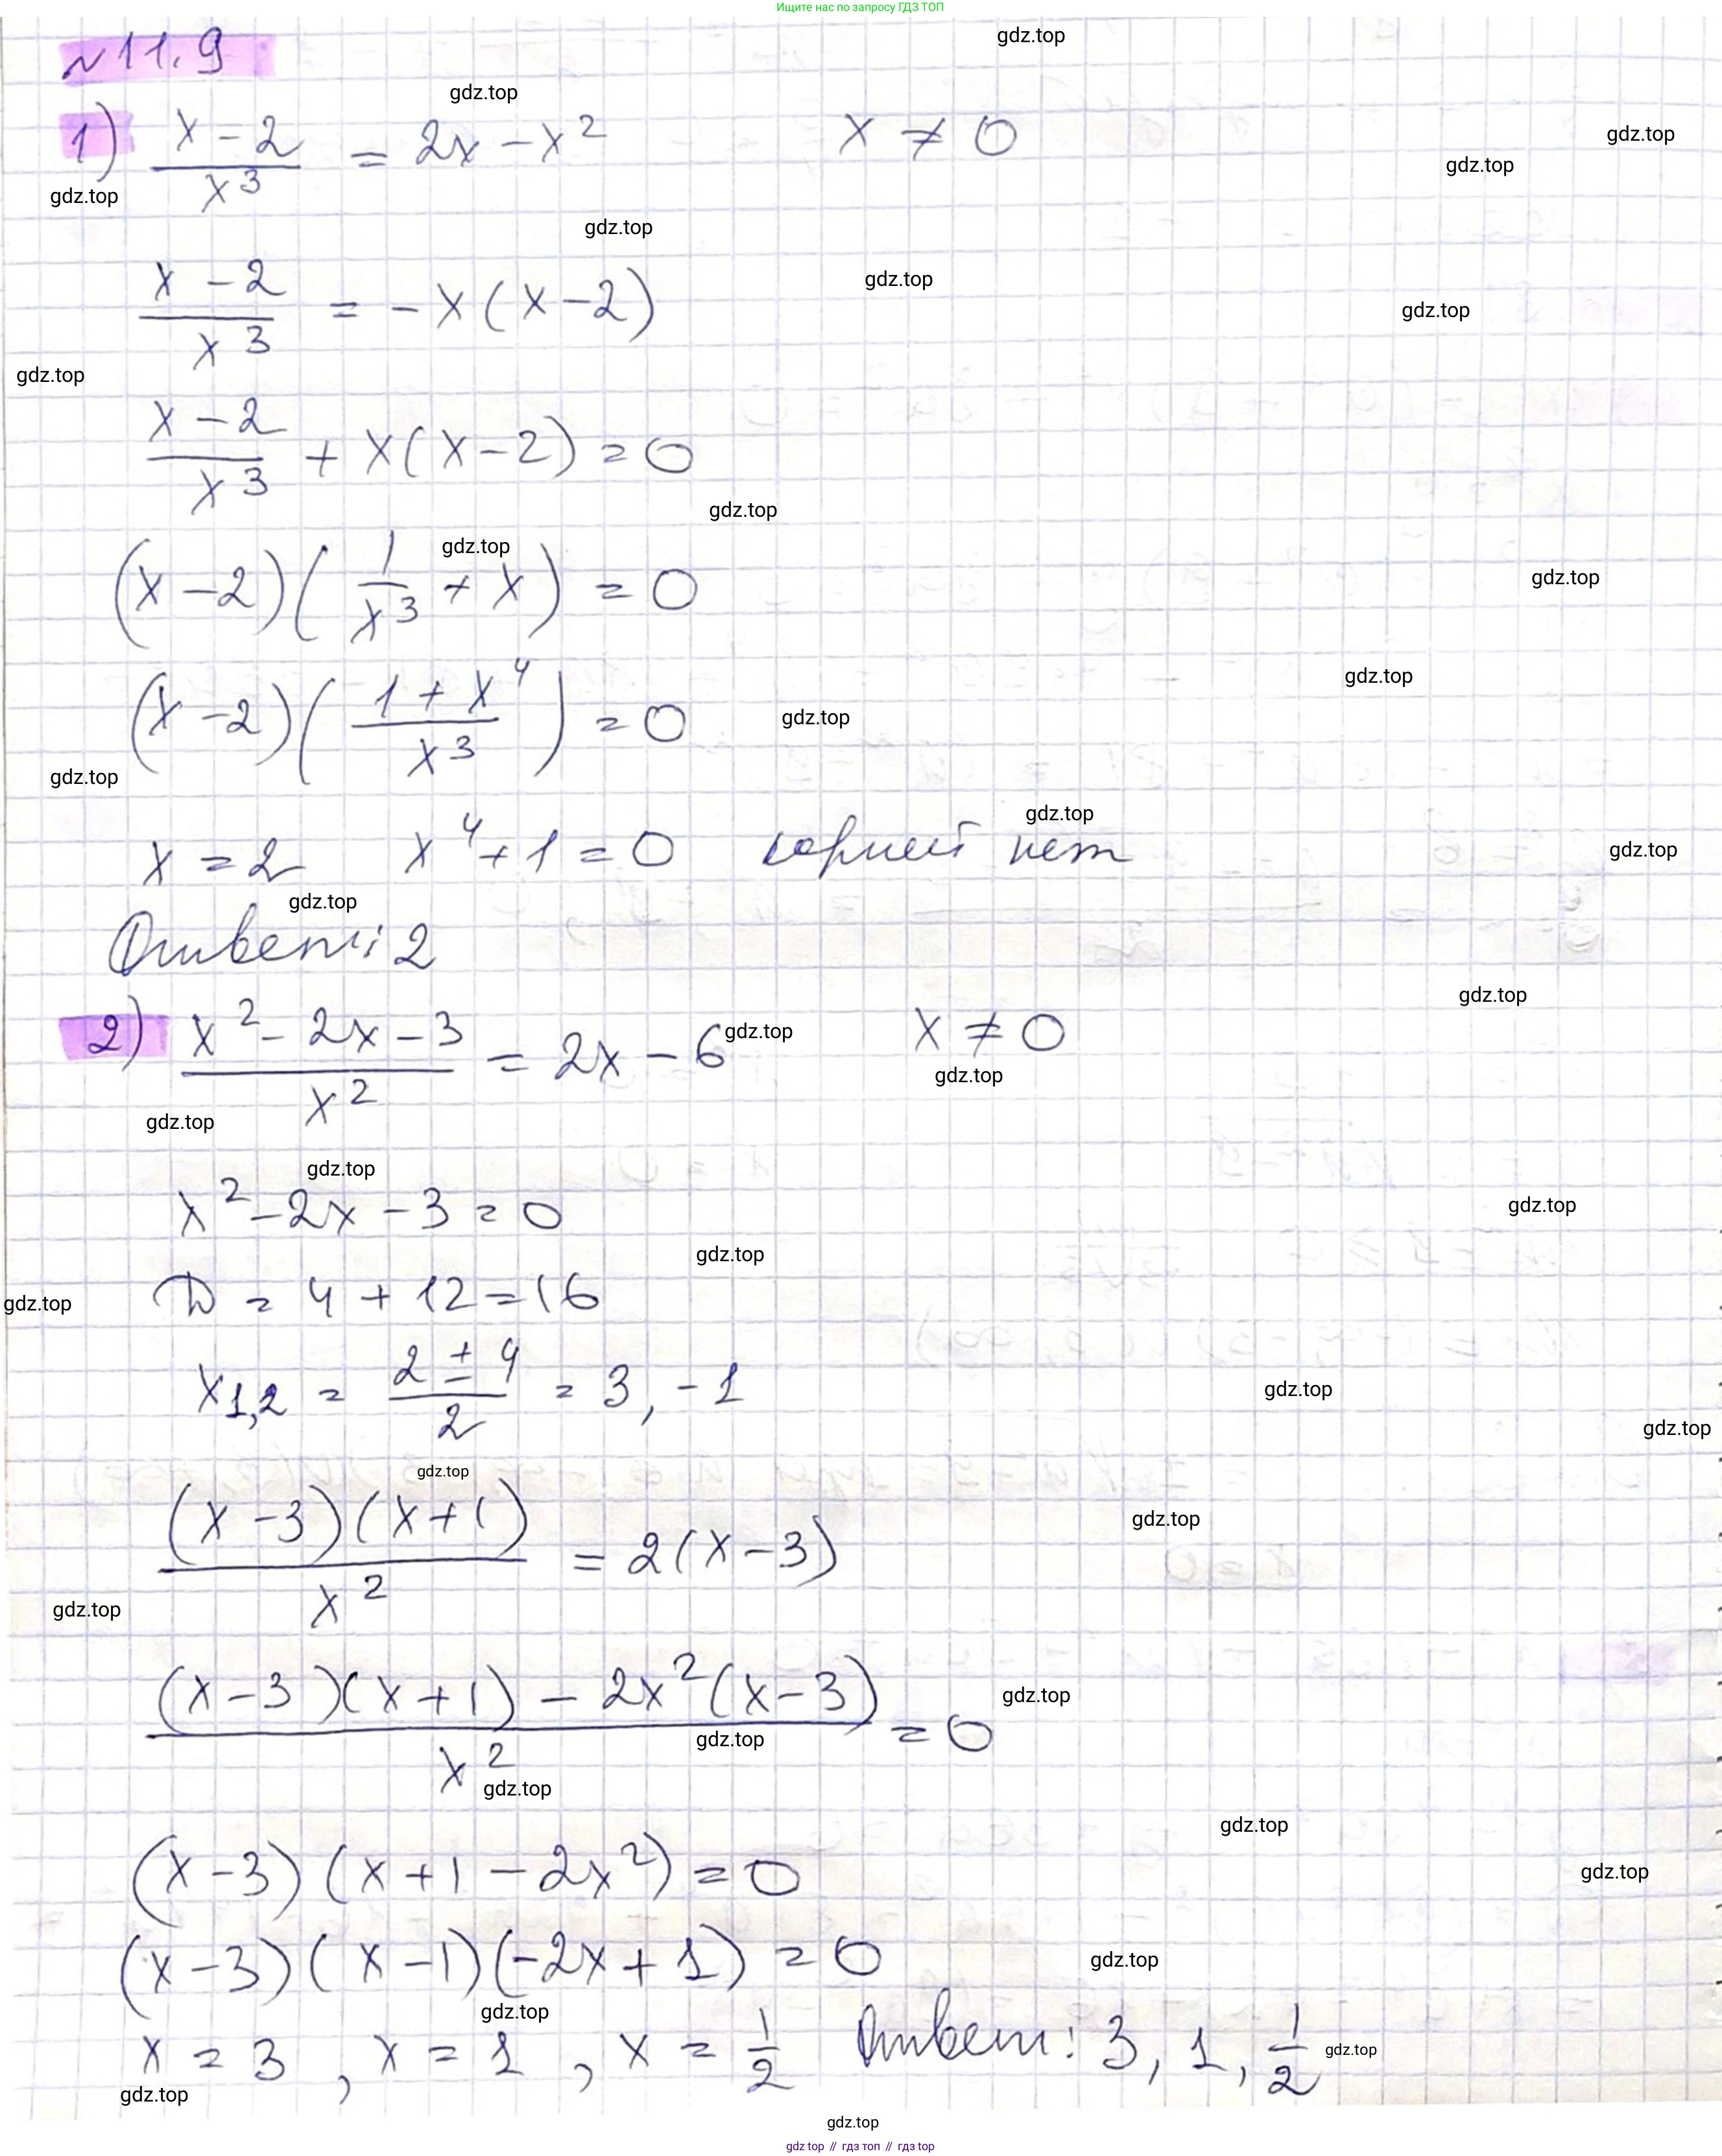 Ищите нас по запросу ГДЗ ТОП
№11.9
gdz.top
gdz.top
1) (x-2)/x³ = 2x - x²    x ≠ 0
gdz.top
gdz.top
gdz.top
gdz.top
(x-2)/x³ = -x(x-2)
gdz.top
gdz.top
gdz.top
(x-2)/x³ + x(x-2) = 0
gdz.top
gdz.top
(x-2)(1/x³ + x) = 0
gdz.top
gdz.top
(x-2)((1+x⁴)/x³) = 0
gdz.top
gdz.top
gdz.top
x = 2    x⁴+1 = 0    корней нет
gdz.top
gdz.top
Ответ: 2
gdz.top
2) (x²-2x-3)/x² = 2x - 6    x ≠ 0
gdz.top
gdz.top
gdz.top
gdz.top
x²-2x-3 = 0
gdz.top
gdz.top
D = 4 + 12 = 16
gdz.top
x1,2 = (2±4)/2 = 3, -1
gdz.top
gdz.top
gdz.top
(x-3)(x+1)/x² = 2(x-3)
gdz.top
gdz.top
((x-3)(x+1) - 2x²(x-3))/x² = 0
gdz.top
gdz.top
gdz.top
gdz.top
(x-3)(x+1-2x²) = 0
gdz.top
(x-3)(x-1)(-2x+1) = 0
gdz.top
gdz.top
x = 3, x = 1, x = 1/2    Ответ: 3, 1, 1/2
gdz.top
gdz.top
gdz.top
gdz top // гдз топ // gdz top